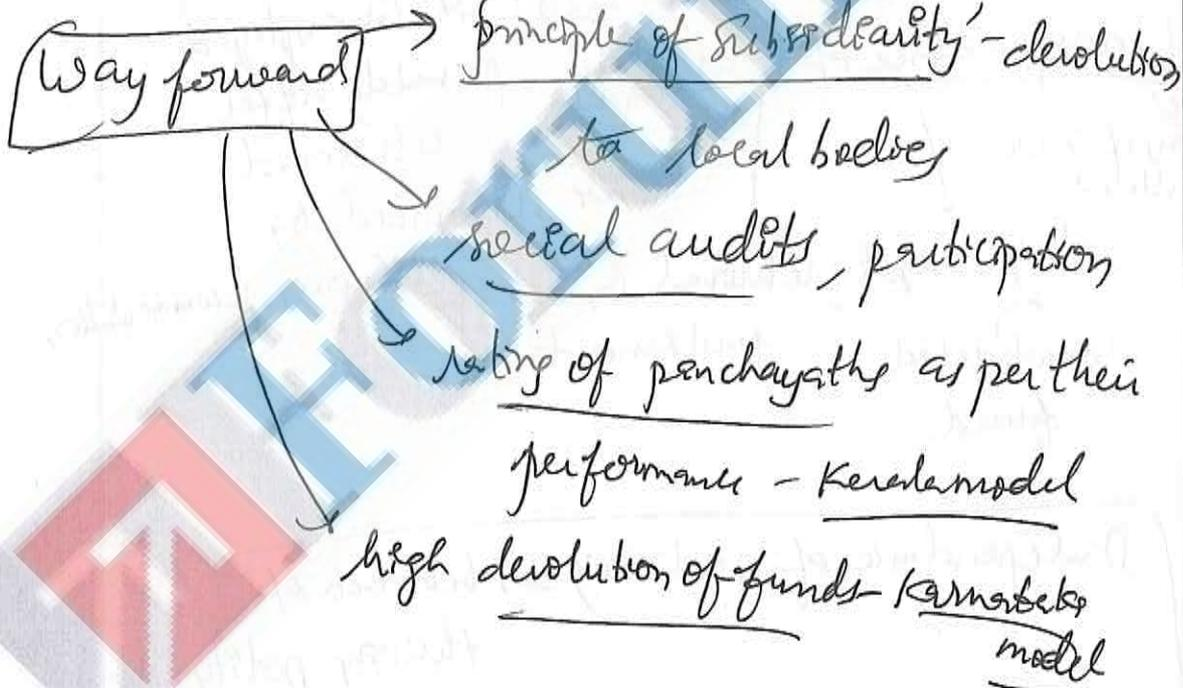 Way forward
principle of subsediarity' - devolution
to local bodies
social audits, priticipation
rating of panchayaths as per their
performance - Kerala model
high devolution of funds - Karnataka
model
Forum